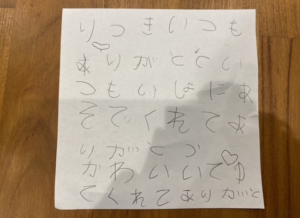 りつきいつも
ありがとうい
つもいしょにあ
そでくれてあ
りがとう
かわいいてゆ
てくれてありがと